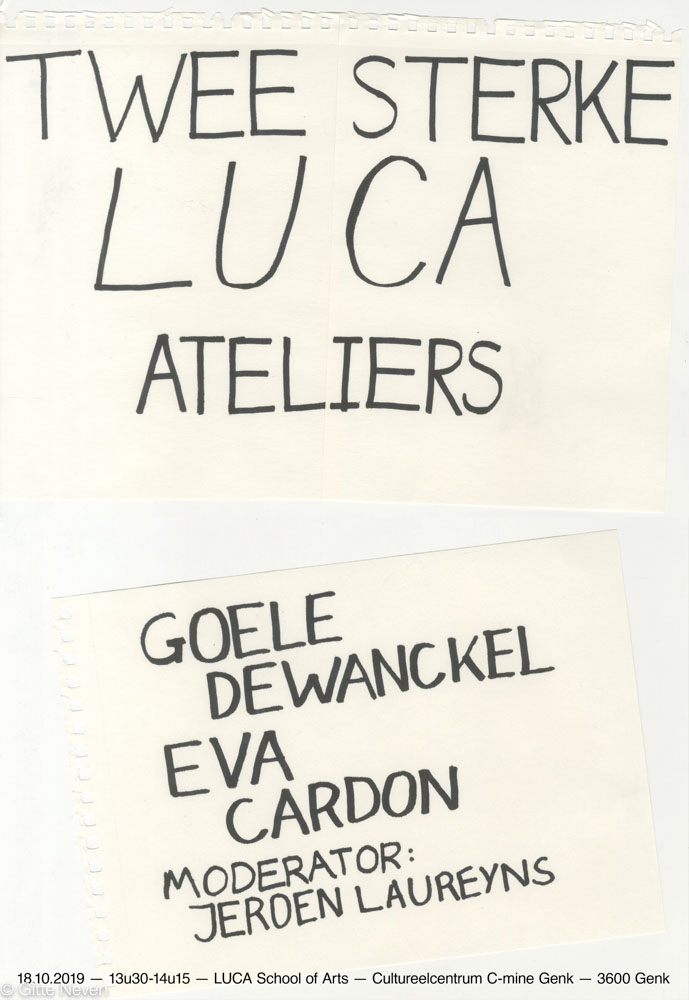 TWEE STERKE
LUCA
ATELIERS
GOELE
DEWANCKEL
EVA
CARDON
MODERATOR:
JEROEN LAUREYNS
18.10.2019 — 13u30-14u15 — LUCA School of Arts — Cultureelcentrum C-mine Genk — 3600 Genk
© Gitte Neven